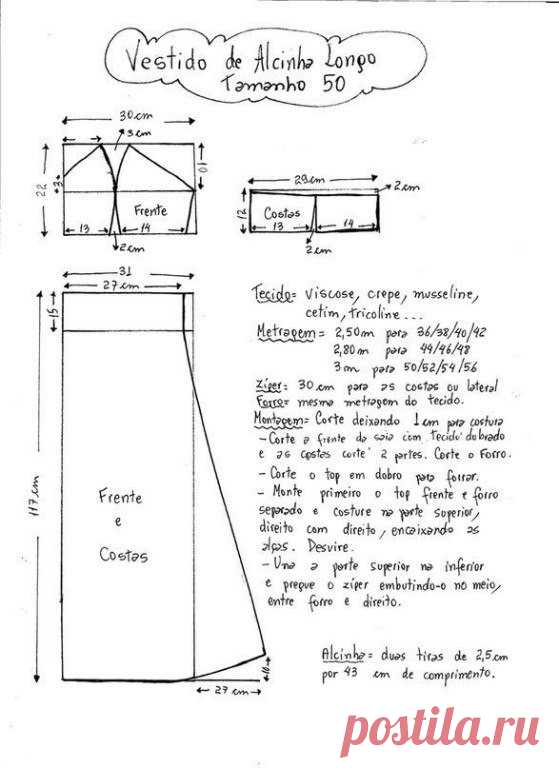 Vestido de Alcinha Longo
Tamanho 50
30 cm
3 cm
22
3
10
Frente
13
14
2 cm
29 cm
2 cm
12
Costas
13
14
2 cm
31
27 cm
15
117 cm
Frente
e
Costas
10
27 cm
Tecido= Viscose, crepe, musseline,
cetim, tricoline...
Metragem= 2,50m para 36/38/40/42
2,80m para 44/46/48
3m para 50/52/54/56
Zíper= 30 cm para as costas ou lateral
Forro= mesma metragem do tecido.
Montagem= Corte deixando 1 cm para costura
- Corte a frente da saia com tecido dobrado
e as costas corte 2 partes. Corte o Forro.
- Corte o top em dobro para forrar.
- Monte primeiro o top frente e forro
separado e costure na parte superior,
direito com direito, encaixando as
alças. Desvire.
- Una a parte superior na inferior
e pregue o zíper embutindo-o no meio,
entre forro e direito.
Alcinha= duas tiras de 2,5cm
por 43 cm de comprimento.
postila.ru